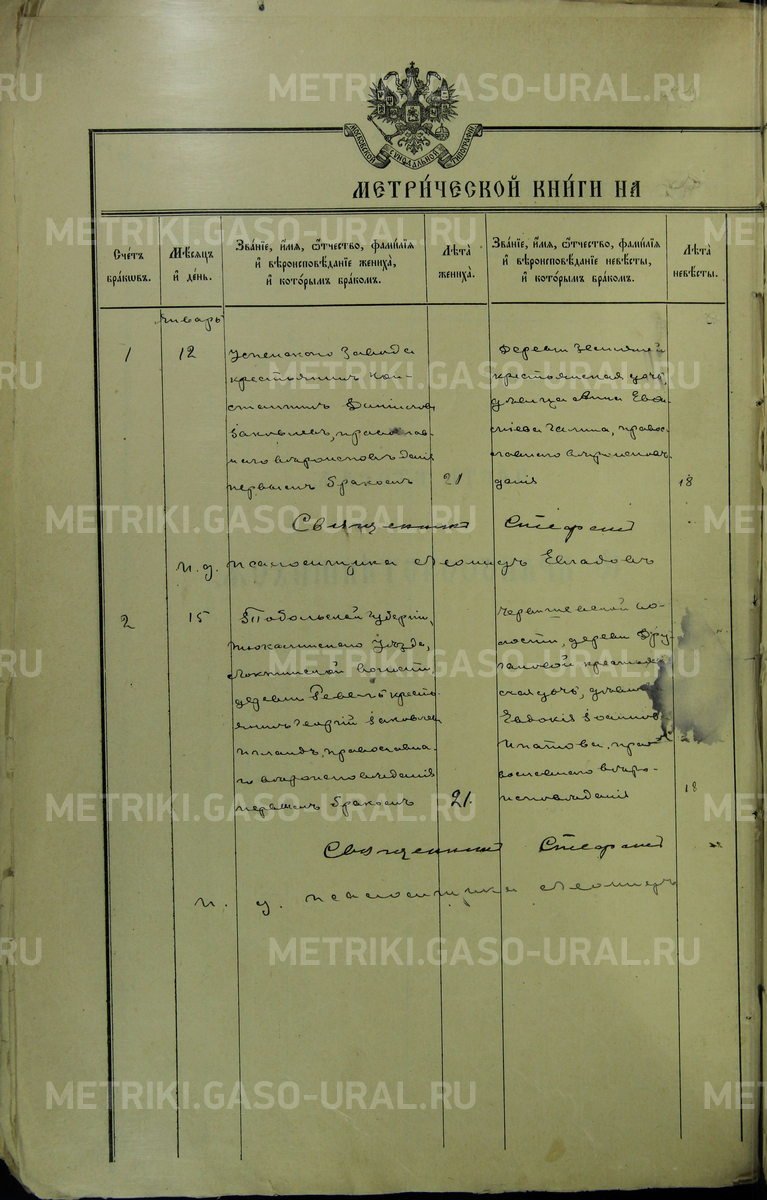 МОСКОВСКОЙ СѴНОДАЛЬНОЙ ТИПОГРАФІИ
МЕТРИ́ЧЕСКОЙ КНИ́ГИ НА
Сче́тъ бра́кѡвъ.
Мѣ́сяцъ и҆ де́нь.
Зва́нїе, и҆́мѧ, ѻ҆́тчество, фамі́лїѧ и҆ вѣроисповѣ́данїе жениха̀, и҆ кото́рымъ бра́комъ.
Лѣ́та жениха̀.
Зва́нїе, и҆́мѧ, ѻ҆́тчество, фамі́лїѧ и҆ вѣроисповѣ́данїе невѣ́сты, и҆ кото́рымъ бра́комъ.
Лѣ́та невѣ́сты.
Январь
1
12
Успенскаго завода
крестьянинъ Кон-
стантинъ
Яковлевъ, православ-
наго вѣроисповѣданія
первымъ бракомъ
21
Деревни
крестьянская дочь,
дѣвица Анна
Галина, правос-
лавнаго вѣроисповѣ-
данія
18
Священникъ Стефанъ
и. д. псаломщика Леонидъ
2
15
Тобольской губерніи,
Тюкалинскаго уѣзда,
Локтинской волости,
деревни кресть-
янинъ Георгій Яковлевъ
православна-
го вѣроисповѣданія
первымъ бракомъ
21.
Червишевской во-
лости, деревни Дру-
гановой крестьян-
ская дочь, дѣвица
Евдокія Іоаннова
Ипатова, пра-
вославнаго вѣро-
исповѣданія
18
Священникъ Стефанъ
и. д. псаломщика Леонидъ
METRIKI.GASO-URAL.RU